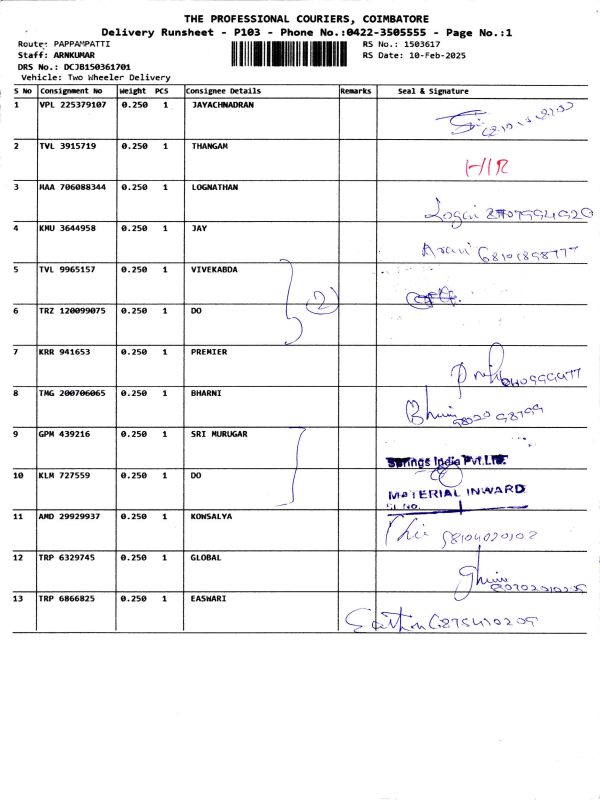 THE PROFESSIONAL COURIERS, COIMBATORE
Delivery Runsheet - P103 - Phone No.:0422-3505555 - Page No.:1
Route: PAPPAMPATTI RS No.: 1503617
Staff: ARNKUMAR RS Date: 10-Feb-2025
DRS No.: DCJB150361701
Vehicle: Two Wheeler Delivery
S No Consignment No Weight PCS Consignee Details Remarks Seal & Signature
1 VPL 225379107 0.250 1 JAYACHNADRAN
2 TVL 3915719 0.250 1 THANGAM
3 MAA 706088344 0.250 1 LOGNATHAN
4 KMU 3644958 0.250 1 JAY
5 TVL 9965157 0.250 1 VIVEKABDA
2
6 TRZ 120099075 0.250 1 DO
7 KRR 941653 0.250 1 PREMIER
8 TMG 200706065 0.250 1 BHARNI
9 GPM 439216 0.250 1 SRI MURUGAR
Springs India Pvt.Ltd.
10 KLM 727559 0.250 1 DO
MATERIAL INWARD
SL NO.
11 AMD 29929937 0.250 1 KOWSALYA
12 TRP 6329745 0.250 1 GLOBAL
13 TRP 6866825 0.250 1 EASWARI